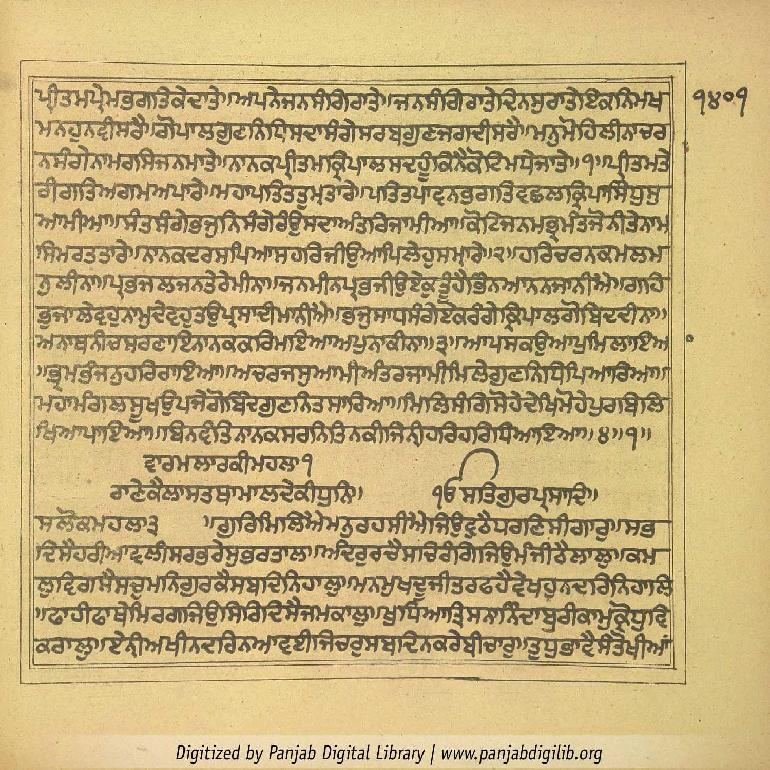 ਪ੍ਰੀਤਮਪ੍ਰੇਮਭਗਤਿਕੇਦਾਤੇ॥ਅਪਨੇਜਨਸੰਗਿਰਾਤੇ॥ਜਨਸੰਗਿਰਾਤੇਦਿਨਸੁਰਾਤੇਇਕਨਿਮਖ
੧੪੦੧
ਮਨਹੁਨਵੀਸਰੈ॥ਗੋਪਾਲਗੁਣਨਿਧਿਸਦਾਸੰਗੇਸਰਬਗੁਣਜਗਦੀਸਰੈ॥ਮਨੁਮੋਹਿਲੀਨਾਚਰ
ਨਸੰਗੇਨਾਮਰਸਿਜਨਮਾਤੇ॥ਨਾਨਕਪ੍ਰੀਤਮਕ੍ਰਿਪਾਲਸਦਹੂੰਕਿਨੈਕੋਟਿਮਧੇਜਾਤੇ॥੧॥ਪ੍ਰੀਤਮਤੇ
ਰੀਗਤਿਅਗਮਅਪਾਰੇ॥ਮਹਾਪਤਿਤਤੁਮ੍ਤਾਰੇ॥ਪਤਿਤਪਾਵਨਭਗਤਿਵਛਲਕ੍ਰਿਪਾਸਿੰਧੁਸੁ
ਆਮੀਆ॥ਸੰਤਸੰਗੇਭਜੁਨਿਸੰਗੇਰੰਉਸਦਾਅੰਤਰਿਜਾਮੀਆ॥ਕੋਟਿਜਨਮਭ੍ਰਮੰਤਜੋਨੀਤੇਨਾਮ
ਸਿਮਰਤਤਾਰੇ॥ਨਾਨਕਦਰਸਪਿਆਸਹਰਿਜੀਉਆਪਿਲੇਹੁਸਮ੍ਹਾਰੇ॥੨॥ਹਰਿਚਰਨਕਮਲਮ
ਨੁਲੀਨਾ॥ਪ੍ਰਭਜਲਜਨਤੇਰੇਮੀਨਾ॥ਜਲਮੀਨਪ੍ਰਭਜੀਉਏਕੁਤੂੰਹੈਭਿੰਨਆਨਨਜਾਨੀਐ॥ਗਹਿ
ਭੁਜਾਲੇਵਹੁਨਾਮੁਦੇਵਹੁਤਉਪ੍ਰਸਾਦੀਮਾਨੀਐ॥ਭਜੁਸਾਧਸੰਗੇਏਕਰੰਗੇਕ੍ਰਿਪਾਲਗੋਬਿਦਦੀਨਾ॥
ਅਨਾਥਨੀਚਸਰਣਾਇਨਾਨਕਕਰਿਮਇਆਅਪੁਨਾਕੀਨਾ॥੩॥ਆਪਸਕਉਆਪੁਮਿਲਾਇਆ
॥ਭ੍ਰਮਭੰਜਨਹਰਿਰਾਇਆ॥ਅਚਰਜਸੁਆਮੀਅੰਤਰਜਾਮੀਮਿਲੇਗੁਣਨਿਧਿਪਿਆਰਿਆ॥
ਮਹਾਮੰਗਲਸੂਖਉਪਜੇਗੋਬਿੰਦਗੁਣਨਿਤਸਾਰਿਆ॥ਮਿਲਿਸੰਗਿਸੋਹੇਦੇਖਿਮੋਹੇਪੁਰਬਿਲਿ
ਖਿਆਪਾਇਆ॥ਬਿਨਵੰਤਿਨਾਨਕਸਰਨਿਤਿਨਕੀਜਿਨੀਹਰਿਹਰਿਧਿਆਇਆ॥੪॥੧॥
ਵਾਰਮਲਾਰਕੀਮਹਲਾ੧
ਰਾਣੇਕੈਲਾਸਤਥਾਮਾਲਦੇਕੀਧੁਨਿ॥ ੴਸਤਿਗੁਰਪ੍ਰਸਾਦਿ॥
ਸਲੋਕਮਹਲਾ੩ ॥ਗੁਰਿਮਿਲਿਐਮਨੁਰਹਸੀਐਜਿਉਵੁਠੈਧਰਣਿਸੀਗਾਰੁ॥ਸਭ
ਦਿਸੈਹਰੀਆਵਲੀਸਰਭਰੇਸੁਭਰਤਾਲ॥ਅੰਦਰੁਰਚੈਸਚਰੰਗਿਜਿਉਮੰਜੀਠੈਲਾਲੁ॥ਕਮ
ਲੁਵਿਗਸੈਸਚੁਮਨਿਗੁਰਕੈਸਬਦਿਨਿਹਾਲੁ॥ਮਨਮੁਖਦੂਜੀਤਰਫਹੈਵੇਖਹੁਨਦਰਿਨਿਹਾਲਿ
॥ਫਾਹੀਫਾਥੇਮਿਰਗਜਿਉਸਿਰਿਦਿਸੈਜਮਕਾਲੁ॥ਖੁਧਿਆਤ੍ਰਿਸਨਾਨਿੰਦਾਬੁਰੀਕਾਮੁਕ੍ਰੋਧੁਵਿ
ਕਰਾਲੁ॥ਏਨੀਅਖੀਨਦਰਿਨਆਵਈਜਿਚਰੁਸਬਦਿਨਕਰੇਬੀਚਾਰੁ॥ਤੁਧੁਭਾਵੈਸੰਤੋਖੀਆਂ
Digitized by Panjab Digital Library | www.panjabdigilib.org